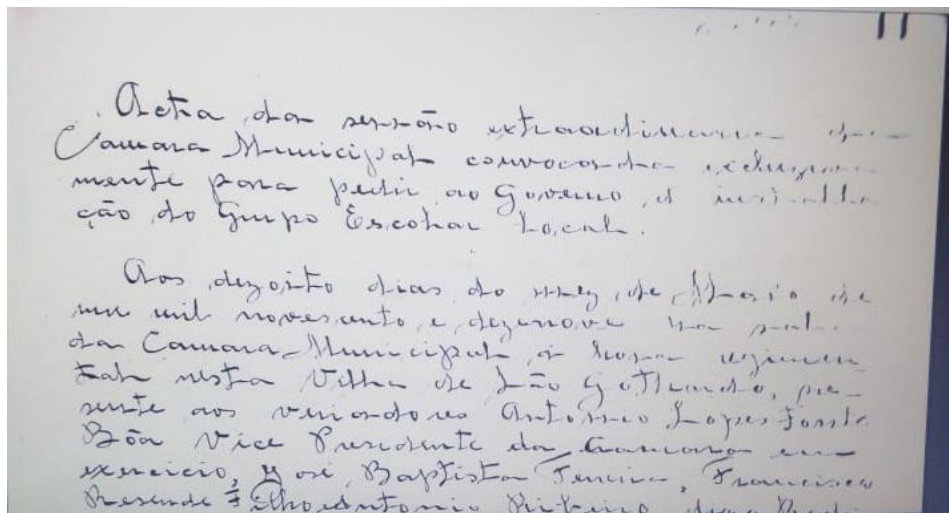 11
Acta da sessão extraordinaria da
Camara Municipal convocada exclusiva
mente para pedir ao Governo, a installa
ção do Grupo Escolar Local.
Aos dezoito dias do mez de Maio de
um mil novecento e dezenove na sala
da Camara Municipal a hora regimen
tal nesta Villa de São Gothardo, pre
sente aos veriadores Antonio Lopes Fonte
Bôa Vice Presidente da Camara em
exercicio, José Baptista Ferreira, Francisco
Resende Filho Antonio Ribeiro